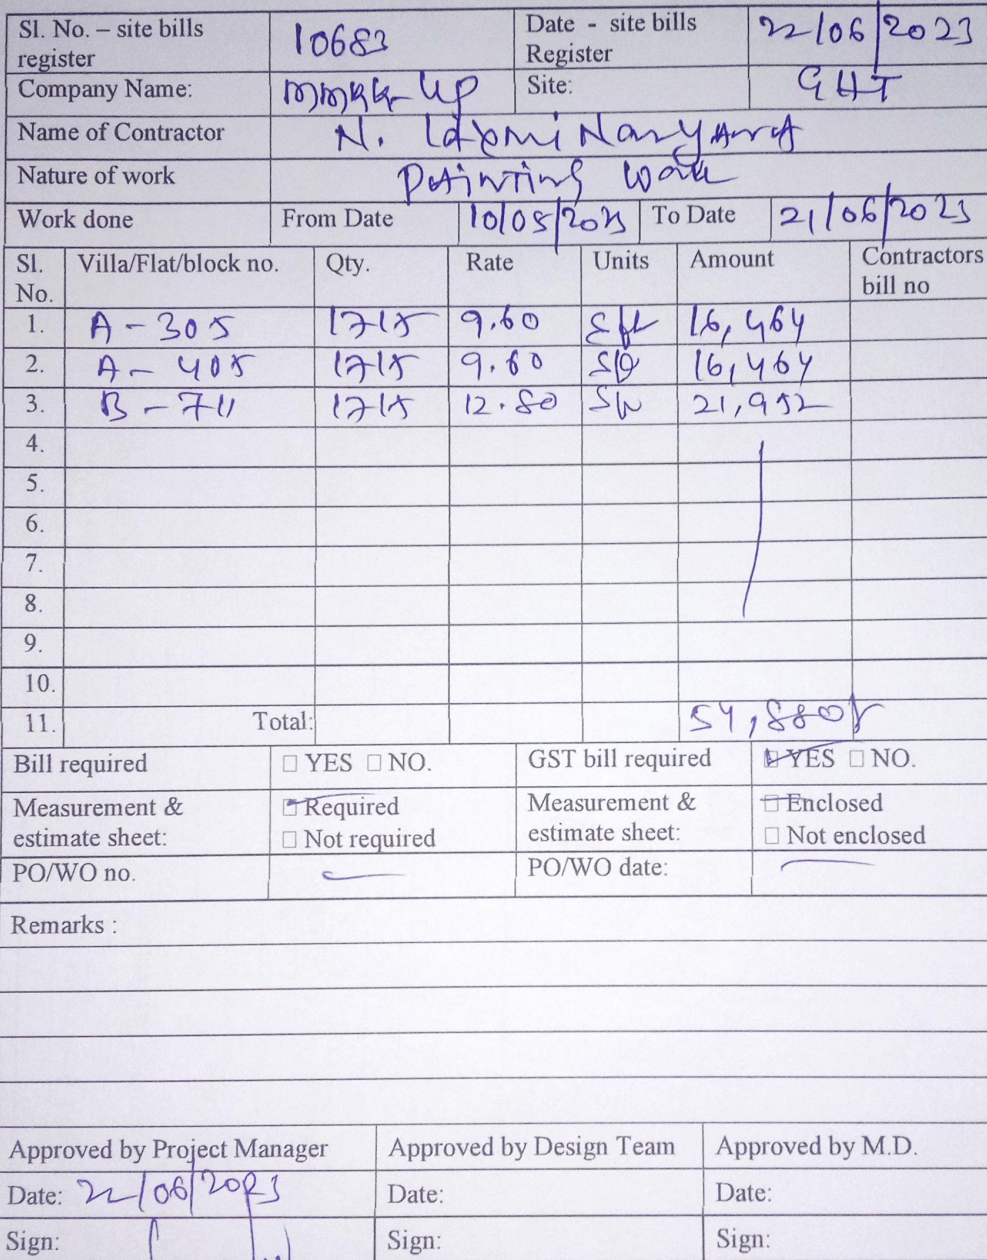 Sl. No. – site bills register 10683 Date - site bills Register 22/06/2023
Company Name: Site: GHT
Name of Contractor N. Laxmi Narayana
Nature of work Painting Work
Work done From Date 10/05/2023 To Date 21/06/2023
Sl. No. Villa/Flat/block no. Qty. Rate Units Amount Contractors bill no
1. A - 305 1715 9.60 Sft 16,464
2. A - 405 1715 9.60 16,464
3. B - 711 1715 12.80 21,952
4.
5.
6.
7.
8.
9.
10.
11. Total: 54,880/-
Bill required □ YES □ NO. GST bill required ☑ YES □ NO.
Measurement & estimate sheet: ☑ Required □ Not required Measurement & estimate sheet: ☑ Enclosed □ Not enclosed
PO/WO no. — PO/WO date: —
Remarks :
Approved by Project Manager Approved by Design Team Approved by M.D.
Date: 22/06/2023 Date: Date:
Sign: Sign: Sign: